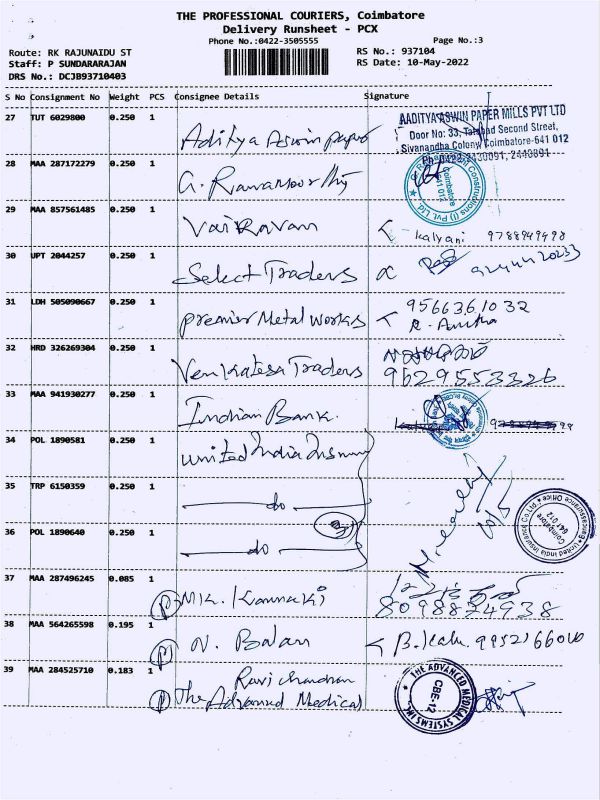 THE PROFESSIONAL COURIERS, Coimbatore
Delivery Runsheet - PCX
Phone No.:0422-3505555
Page No.:3
Route: RK RAJUNAIDU ST
RS No.: 937104
Staff: P SUNDARARAJAN
RS Date: 10-May-2022
DRS No.: DCJB93710403
S No Consignment No Weight PCS Consignee Details Signature
27 TUT 6029800 0.250 1 Aditya Aswin paper
AADITYA ASWIN PAPER MILLS PVT LTD
Door No: 33, Tatabad Second Street,
Sivanandha Colony, Coimbatore-641 012
28 MAA 287172279 0.250 1 G. Ramamoorthy
Constructions (I) Pvt. Ltd.
Coimbatore
29 MAA 857561485 0.250 1 VaiRavan
Kalyani 9788949498
30 UPT 2044257 0.250 1 Select Traders
31 LDH 505090667 0.250 1 Premier Metal Works
9566361032
32 HRD 326269304 0.250 1 Venkatesa Traders
9629553326
33 MAA 941930277 0.250 1 Indian Bank.
34 POL 1890581 0.250 1 United India Insu
35 TRP 6150359 0.250 1 do
36 POL 1890640 0.250 1 do
3
United India Insurance Co. Ltd.
Coimbatore
641 012
37 MAA 287496245 0.085 1 P MK. Kannaki
8098824938
38 MAA 564265598 0.195 1 P N. Balan
39 MAA 284525710 0.183 1 P Ravichandran
The Advanced Medical
THE ADVANCED MEDICAL SYSTEMS INC.
CBE-12